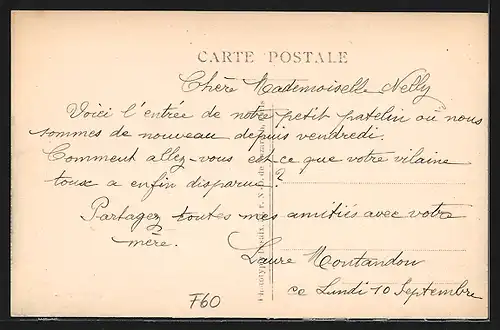 CARTE POSTALE
Chère Mademoiselle Nelly
Voici l'entrée de notre petit patelin où nous
sommes de nouveau depuis vendredi.
Comment allez-vous est ce que votre vilaine
toux a enfin disparue ?
Partagez toutes mes amitiés avec votre
mère.
Laure Montandon
ce Lundi 10 Septembre
F60